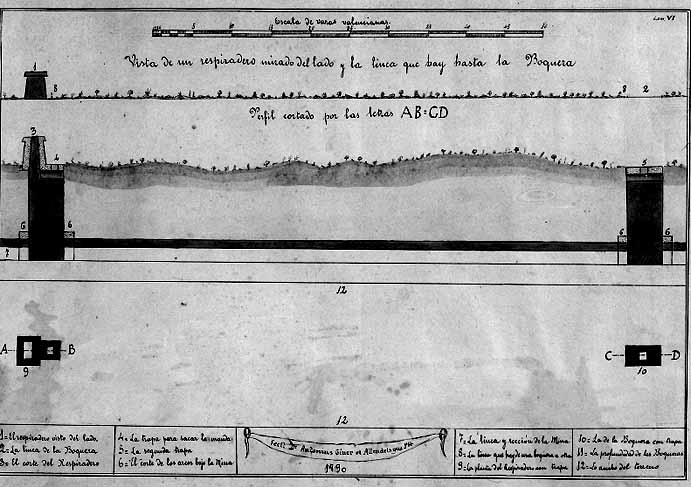 Escala de varas valencianas.
Lam. VI
5 10 15 20 25 30 35 40 45 50
Vista de un respiradero mirado del lado y la linea que hay hasta la Boquera
1 8 8 2
Perfil cortado por las letras AB=CD
3 4 5
6 6 6 6
7
12
A B C D
9 10
12
1=El respiradero visto del lado
2=La linea de la Boquera
3=El corte del Respiradero
4=La trapa para sacar la
5=La segunda trapa
6=El corte de los arcos bajo la Mina
Fecit Antonius Giner et Aliundeis
1890
7=La linea y sección de la Mina
8=La linea que hay de una boquera a otra
9=La planta del Respiradero con trapa
10=La de la Boquera con trapa
11=La profundidad de las Boqueras
12=Lo ancho del terreno